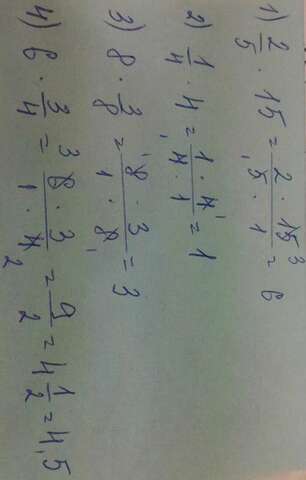 1) 2/5 · 15 = (2 · 15 3)/(1 5 · 1) = 6
2) 1/4 · 4 = (1 · 4 1)/(1 4 · 1) = 1
3) 8 · 3/8 = (1 8 · 3)/(1 · 8 1) = 3
4) 6 · 3/4 = (3 6 · 3)/(1 · 4 2) = 9/2 = 4 1/2 = 4,5